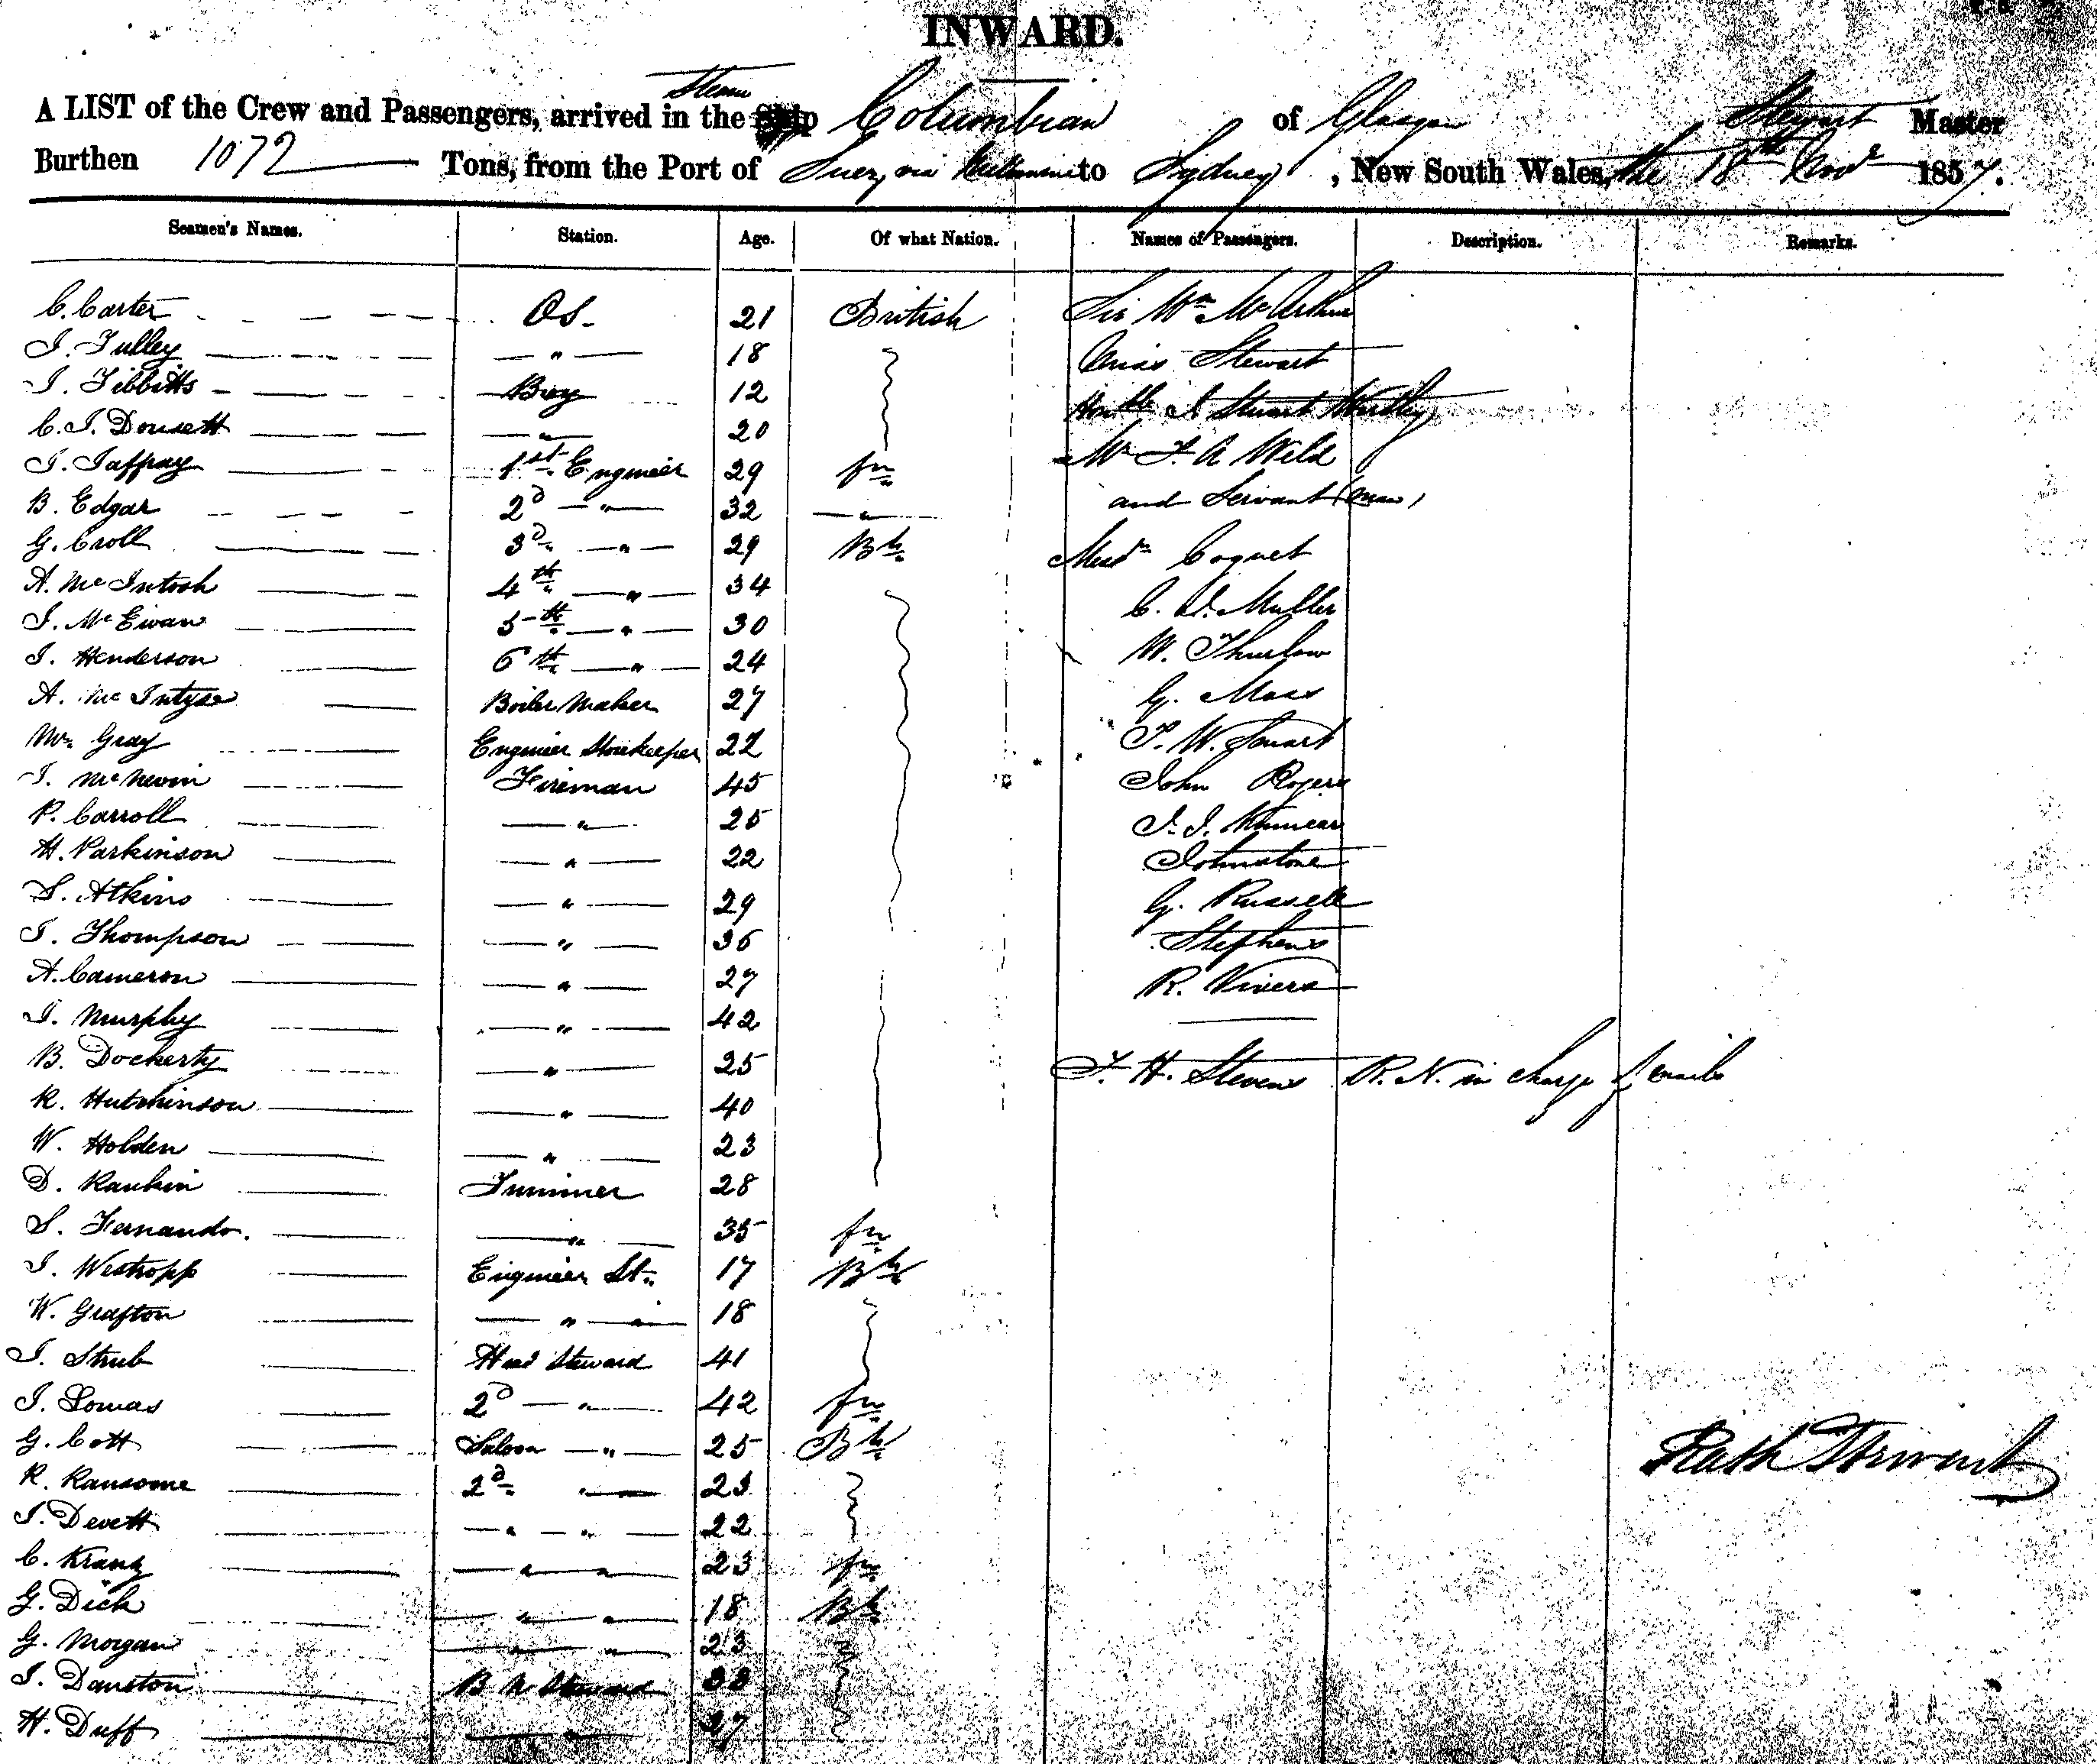 INWARD.
A LIST of the Crew and Passengers, arrived in the Steam Ship Columbian of Glasgow Stewart Master
Burthen 1072 Tons, from the Port of Suez via Melbourne to Sydney, New South Wales, the 18th Novr 1857.
Seamen's Names. Station. Age. Of what Nation. Names of Passengers. Description. Remarks.
C. Carter OS. 21 British Sir Wm McArthur
J. Tulley " 18 Miss Stewart
J. Tibbitts Boy 12 Honble J Stuart Wortley
C. J. Dousett " 20
J. Jaffray 1st Engineer 29 fn Mr F. A Weld
B. Edgar 2d " 32 " and Servant (man)
G. Croll 3d " 29 Bh Messrs Coquet
A. McIntosh 4th " 34 Muller
J. McEwan 5th " 30 W. Thurlow
J. Henderson 6th " 24 G. Moss
A. McIntyre Boiler Maker 27
Wm Gray Engineer Storekeeper 22 T. W. Smart
J. McNevin Fireman 45 John Rogers
P. Carroll " 25 J. J. Kinnear
H. Parkinson " 22 Johnstone
S. Atkins " 29 G. Russell
J. Thompson " 36 Stephens
A. Cameron " 27 R. Vivers
J. Murphy " 42
B. Dockerty " 25 F. H. Stevens R.N. in charge of mails
R. Hutchinson " 40
W. Holden " 23
D. Rankin Trimmer 28
S. Fernando. " 35 fn
J. Westropp Engineer St. 17 Bh
W. Grafton " 18
J. Strub Head Steward 41
J. Lomas 2d " 42 fn
G. Cott Saloon " 25 Bh
R. Ransome 2d " 23
J. Devett " " 22
C. Kranz " " 23 fn
G. Dick " " 18 Bh
G. Morgan " " 23
J. Danston B R Steward 38
H. Duff " 27
Stewart